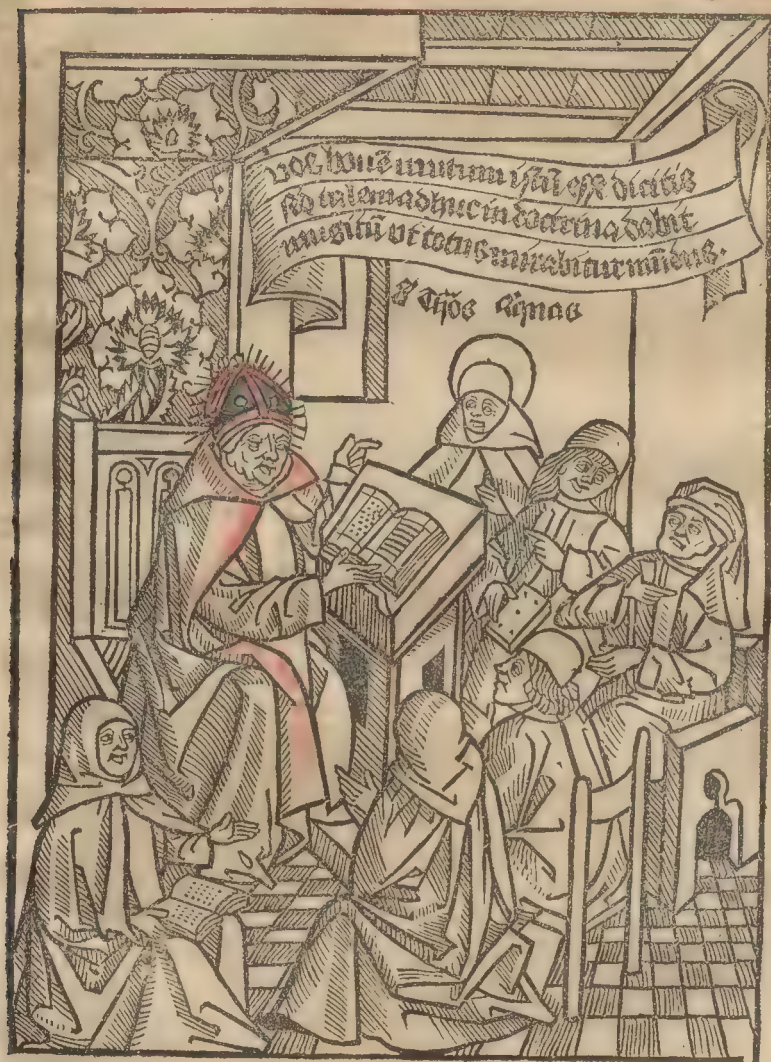 vos bouē mutum istū esse dicitis
sed talem adhuc in doctrina dabit
mugitū vt totus mirabitur mūdus.
S Thōs Aq̄nas